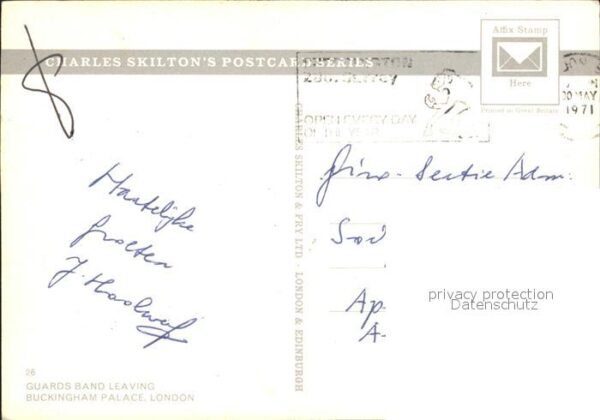 CHARLES SKILTON'S POSTCARD SERIES
Affix Stamp
Here
Printed in Great Britain
ZOO, SURREY
OPEN EVERY DAY
OF THE YEAR
30 MAY
1971
CHARLES SKILTON & FRY LTD · LONDON & EDINBURGH
Hartelijke
groeten
J.
Giro - Sectie Adm.
Ap
A-
privacy protection
Datenschutz
26
GUARDS BAND LEAVING
BUCKINGHAM PALACE, LONDON